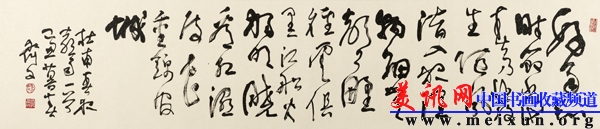 好雨知
时节当
春乃发
生随风
潜入夜润
物细无
声野
径云俱
黑江船火
独明晓
看红湿
处花
重锦官
城
杜甫春夜
喜雨一首
暮春
美讯网
中国书画收藏频道
www.meixun.org